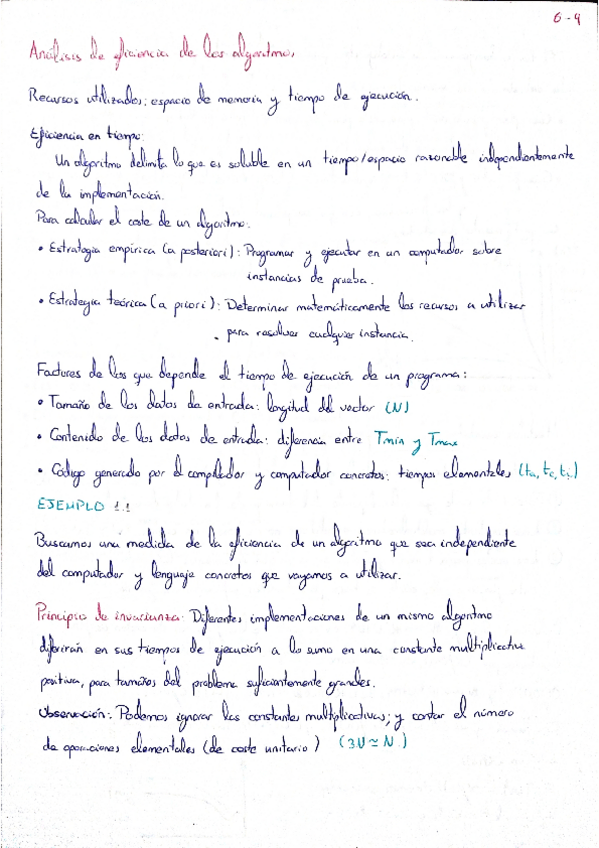 6-9
Análisis de eficiencia de los algoritmos
Recursos utilizados: espacio de memoria y tiempo de ejecución.
Eficiencia en tiempo:
Un algoritmo delimita lo que es soluble en un tiempo/espacio razonable independientemente
de la implementación.
Para calcular el coste de un algoritmo:
• Estrategia empírica (a posteriori): Programar y ejecutar en un computador sobre
instancias de prueba.
• Estrategia teórica (a priori): Determinar matemáticamente los recursos a utilizar
para resolver cualquier instancia.
Factores de los que depende el tiempo de ejecución de un programa:
• Tamaño de los datos de entrada: longitud del vector (N)
• Contenido de los datos de entrada: diferencia entre Tmin y Tmax
• Código generado por el compilador y computador concretos: tiempos elementales (ta, tc,
EJEMPLO 1.1
Buscamos una medida de la eficiencia de un algoritmo que sea independiente
del computador y lenguaje concretos que vayamos a utilizar.
Principio de invarianza: Diferentes implementaciones de un mismo algoritmo
diferirán en sus tiempos de ejecución a lo sumo en una constante multiplicativa
positiva, para tamaños del problema suficientemente grandes.
Observación: Podemos ignorar las constantes multiplicativas; y contar el número
de operaciones elementales (de coste unitario) (3N ≃ N)